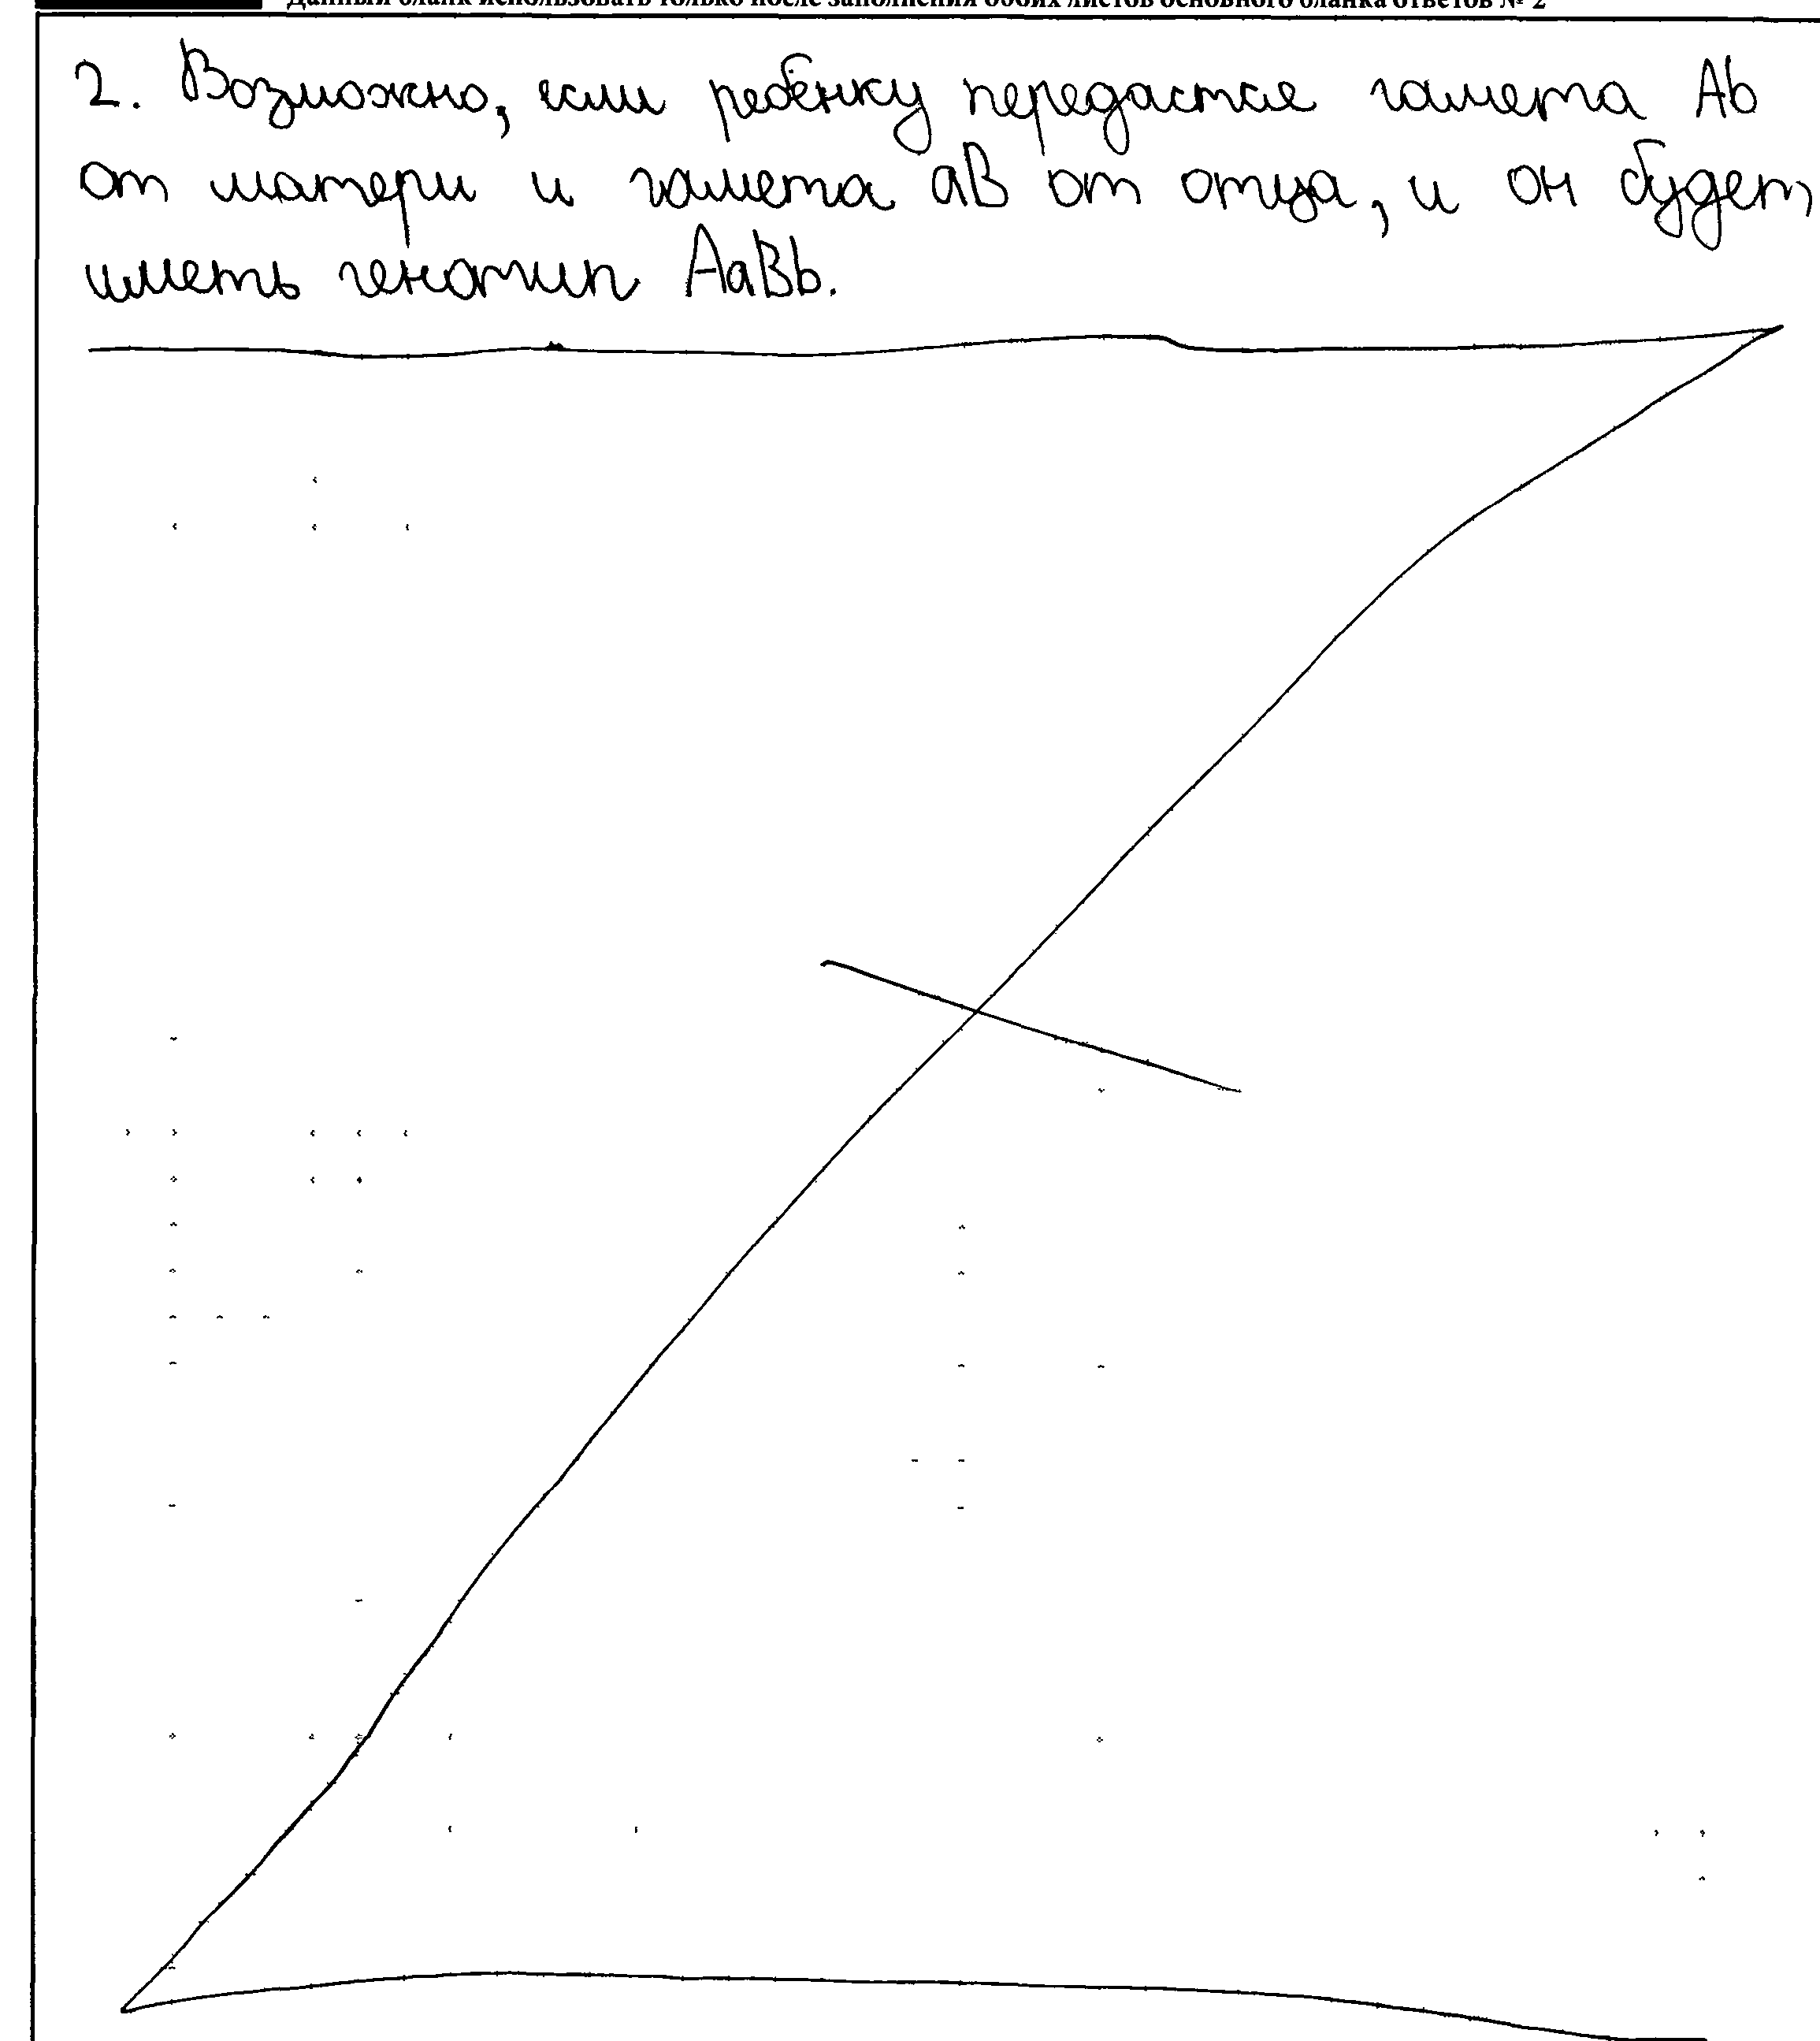 Данный бланк использовать только после заполнения обоих листов основного бланка ответов № 2
2. Возможно, если ребёнку передастся гамета Ab
от матери и гамета aB от отца, и он будет
иметь генотип AaBb.